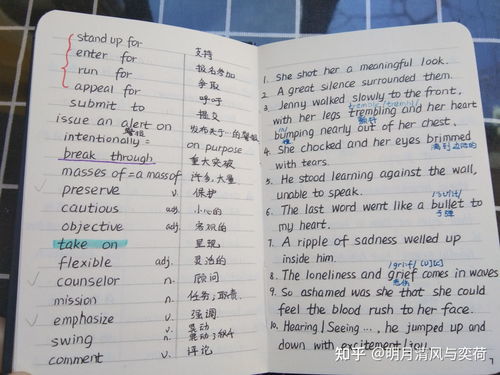 stand up for 支持
enter for 报名参加
run for 争取
appeal for 呼吁
submit to 提交
issue an alert on 发布关于…的警报
警报
intentionally = on purpose
break through 重大突破
masses of = a mass of 许多,大量
preserve v. 保护
cautious adj. 小心的
objective adj. 客观的
take on 呈现
flexible adj. 灵活的
counselor n. 顾问
mission n. 任务;职责
emphasize v. 强调
swing v. 晃动
n.
comment v. 评论
1. She shot her a meaningful look.
2. A great silence surrounded them.
3. Jenny walked slowly to the front,
with her legs trembling and her heart
颤抖
bumping nearly out of her chest.
4. She chocked and her eyes brimmed
with tears.
5. He stood learning against the wall,
unable to speak.
6. The last word went like a bullet to
子弹
my heart.
7. A ripple of sadness welled up
inside him.
/grif/ [U][C]
8. The loneliness and grief comes in waves
悲伤
9. So ashamed was she that she could
feel the blood rush to her face.
10. Hearing/Seeing..., he jumped up and
down with excitement/joy.
知乎 @明月清风与奕荷
7